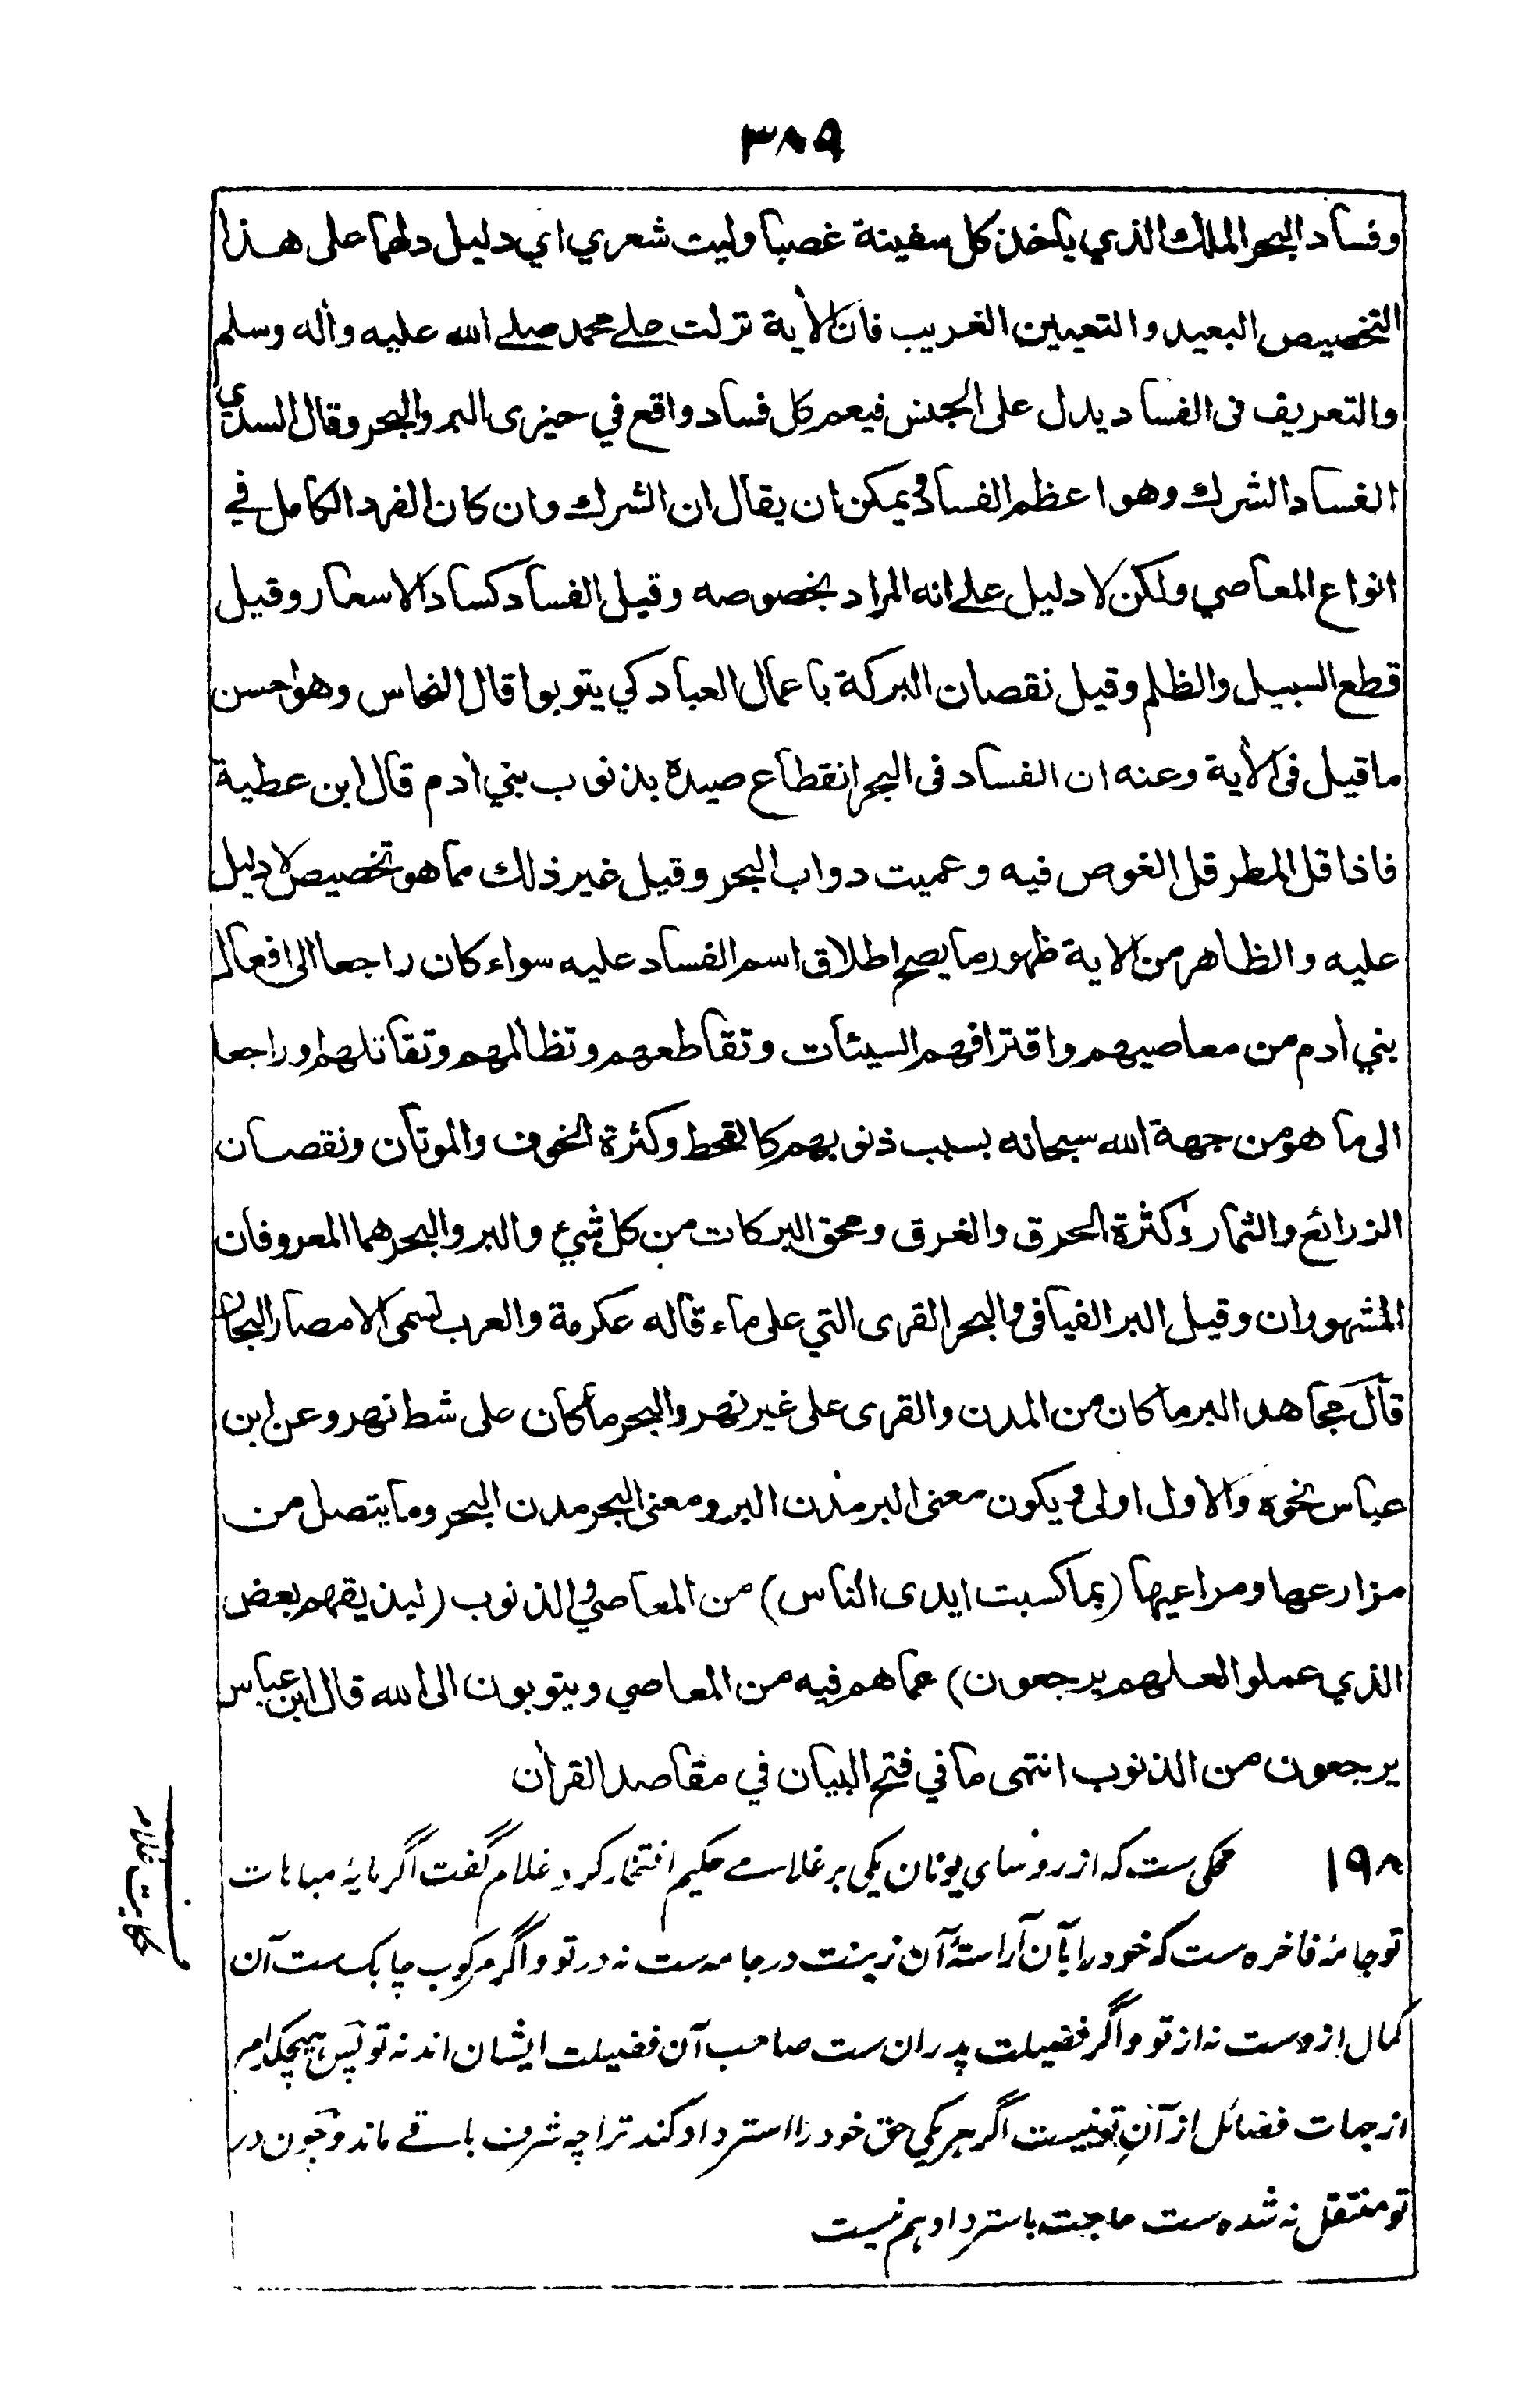 ٣٨٩
وفساد البحر الملك الذي ياخذ كل سفينة غصبا وليت شعري اي دليل دلهما على هذا
التخصيص البعيد والتعيين الغريب فان الأية نزلت على محمد صلى الله عليه وأله وسلم
والتعريف فى الفساد يدل على الجنس فيعم كل فساد واقع في حيزى البر والبحر وقال السدي
الفساد الشرك وهو اعظم الفساد ويمكن ان يقال ان الشرك وان كان الفرد الكامل في
انواع المعاصي ولكن لا دليل على انه المراد بخصوصه وقيل الفساد كساد الاسعار وقيل
قطع السبيل والظلم وقيل نقصان البركة باعمال العباد كي يتوبوا قال النحاس وهو احسن
ما قيل فى الأية وعنه ان الفساد فى البحر انقطاع صيده بذنوب بني أدم قال ابن عطية
فاذا قل المطر قل الغوص فيه وعميت دواب البحر وقيل غير ذلك مما هو تخصيص لا دليل
عليه والظاهر من الاية ظهور ما يصح اطلاق اسم الفساد عليه سواء كان راجعا الى افعال
بني أدم من معاصيهم واقترافهم السيئات وتقاطعهم وتظالمهم وتقاتلهم او راجعا
الى ما هو من جهة الله سبحانه بسبب ذنوبهم كالقحط وكثرة الخوف والموتان ونقصان
الزرائع والثمار وكثرة الحرق والغرق ومحق البركات من كل شيء والبر والبحر هما المعروفان
المشهوران وقيل البر الفيافى والبحر القرى التي على ماء قاله عكرمة والعرب تسمى الامصار البحار
قال مجاهد البر ما كان من المدن والقرى على غير نهر والبحر ما كان على شط نهر وعن ابن
عباس نحوه والاول اولى ويكون معنى البر مدن البر ومعنى البحر مدن البحر وما يتصل من
مزارعها ومراعيها (بما كسبت ايدى الناس) من المعاصي والذنوب (ليذيقهم بعض
الذي عملوا لعلهم يرجعون) عما هم فيه من المعاصي ويتوبون الى الله قال ابن عباس
يرجعون من الذنوب انتهى ما في فتح البيان في مقاصد القرأن
١٩٨ محكى ست كه از روساى يونان يكى بر غلامے حكيم افتخار كرد غلام گفت اگر مايۂ مباهات
تو جامۂ فاخره ست كه خود را بآن آراستۂ آن زينت در جامه ست نه در تو و اگر مركوب چابك ست آن
كمال ازوست نه از تو و اگر فضيلت پدران ست صاحب آن فضيلت ايشان اند نه تو پس هيچكدام
از جهات فضائل از آنِ تو نيست اگر هر يكى حق خود را استرداد كند ترا چه شرف باقے ماند و چون در
تو منتقل نه شده ست حاجت باسترداد هم نيست
حكايت غلام